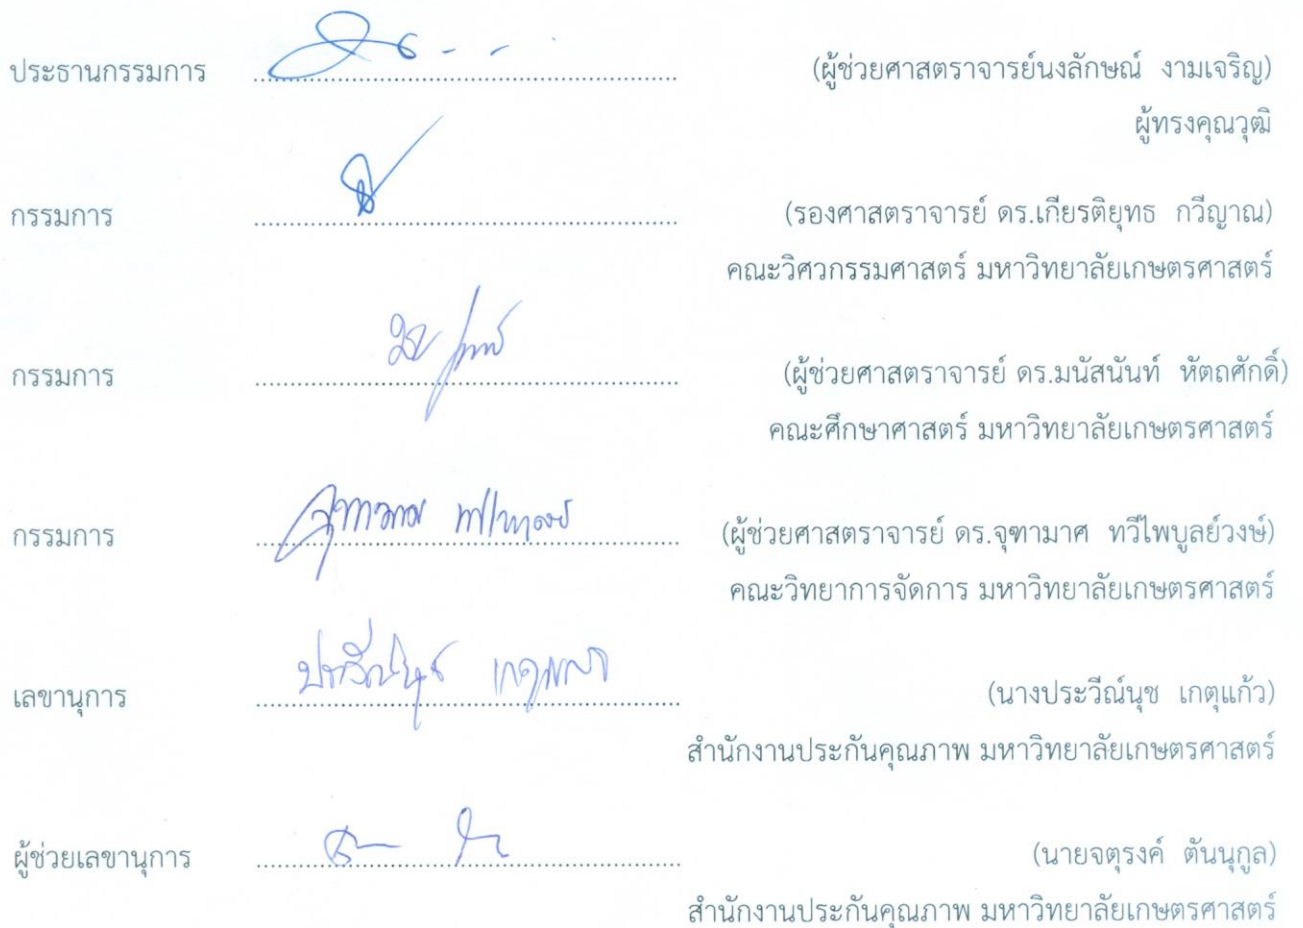 ประธานกรรมการ ........................................ (ผู้ช่วยศาสตราจารย์นงลักษณ์ งามเจริญ)
ผู้ทรงคุณวุฒิ
กรรมการ ........................................ (รองศาสตราจารย์ ดร.เกียรติยุทธ กวีญาณ)
คณะวิศวกรรมศาสตร์ มหาวิทยาลัยเกษตรศาสตร์
กรรมการ ........................................ (ผู้ช่วยศาสตราจารย์ ดร.มนัสนันท์ หัตถศักดิ์)
คณะศึกษาศาสตร์ มหาวิทยาลัยเกษตรศาสตร์
กรรมการ ........................................ (ผู้ช่วยศาสตราจารย์ ดร.จุฑามาศ ทวีไพบูลย์วงษ์)
คณะวิทยาการจัดการ มหาวิทยาลัยเกษตรศาสตร์
เลขานุการ ........................................ (นางประวีณ์นุช เกตุแก้ว)
สำนักงานประกันคุณภาพ มหาวิทยาลัยเกษตรศาสตร์
ผู้ช่วยเลขานุการ ........................................ (นายจตุรงค์ ตันนุกูล)
สำนักงานประกันคุณภาพ มหาวิทยาลัยเกษตรศาสตร์